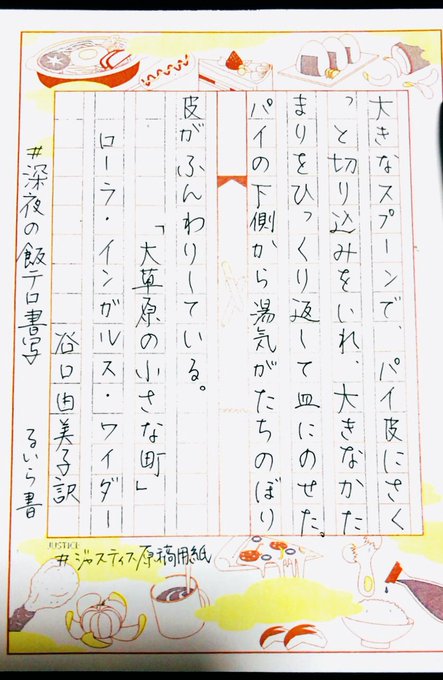 大きなスプーンで、パイ皮にさく
っと切り込みをいれ、大きなかた
まりをひっくり返して皿にのせた。
パイの下側から湯気がたちのぼり
皮がふんわりしている。
「大草原の小さな町」
ローラ・インガルス・ワイダー
谷口由美子訳
#深夜の飯テロ書写 るいら書
JUSTICE
#ジャスティス原稿用紙